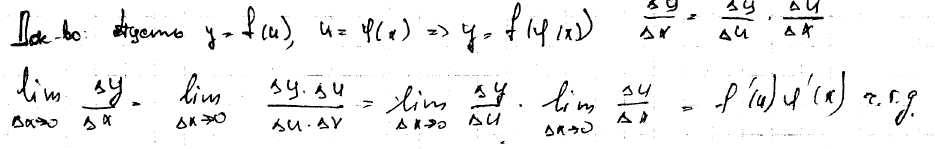 Док-во: Пусть y = f(u), u = φ(x) => y = f(φ(x)) Δy/Δx = Δy/Δu · Δu/Δx
lim Δx→0 Δy/Δx = lim Δx→0 Δy·Δu/Δu·Δx = lim Δx→0 Δy/Δu · lim Δx→0 Δu/Δx = f'(u)φ'(x) ч.т.д.